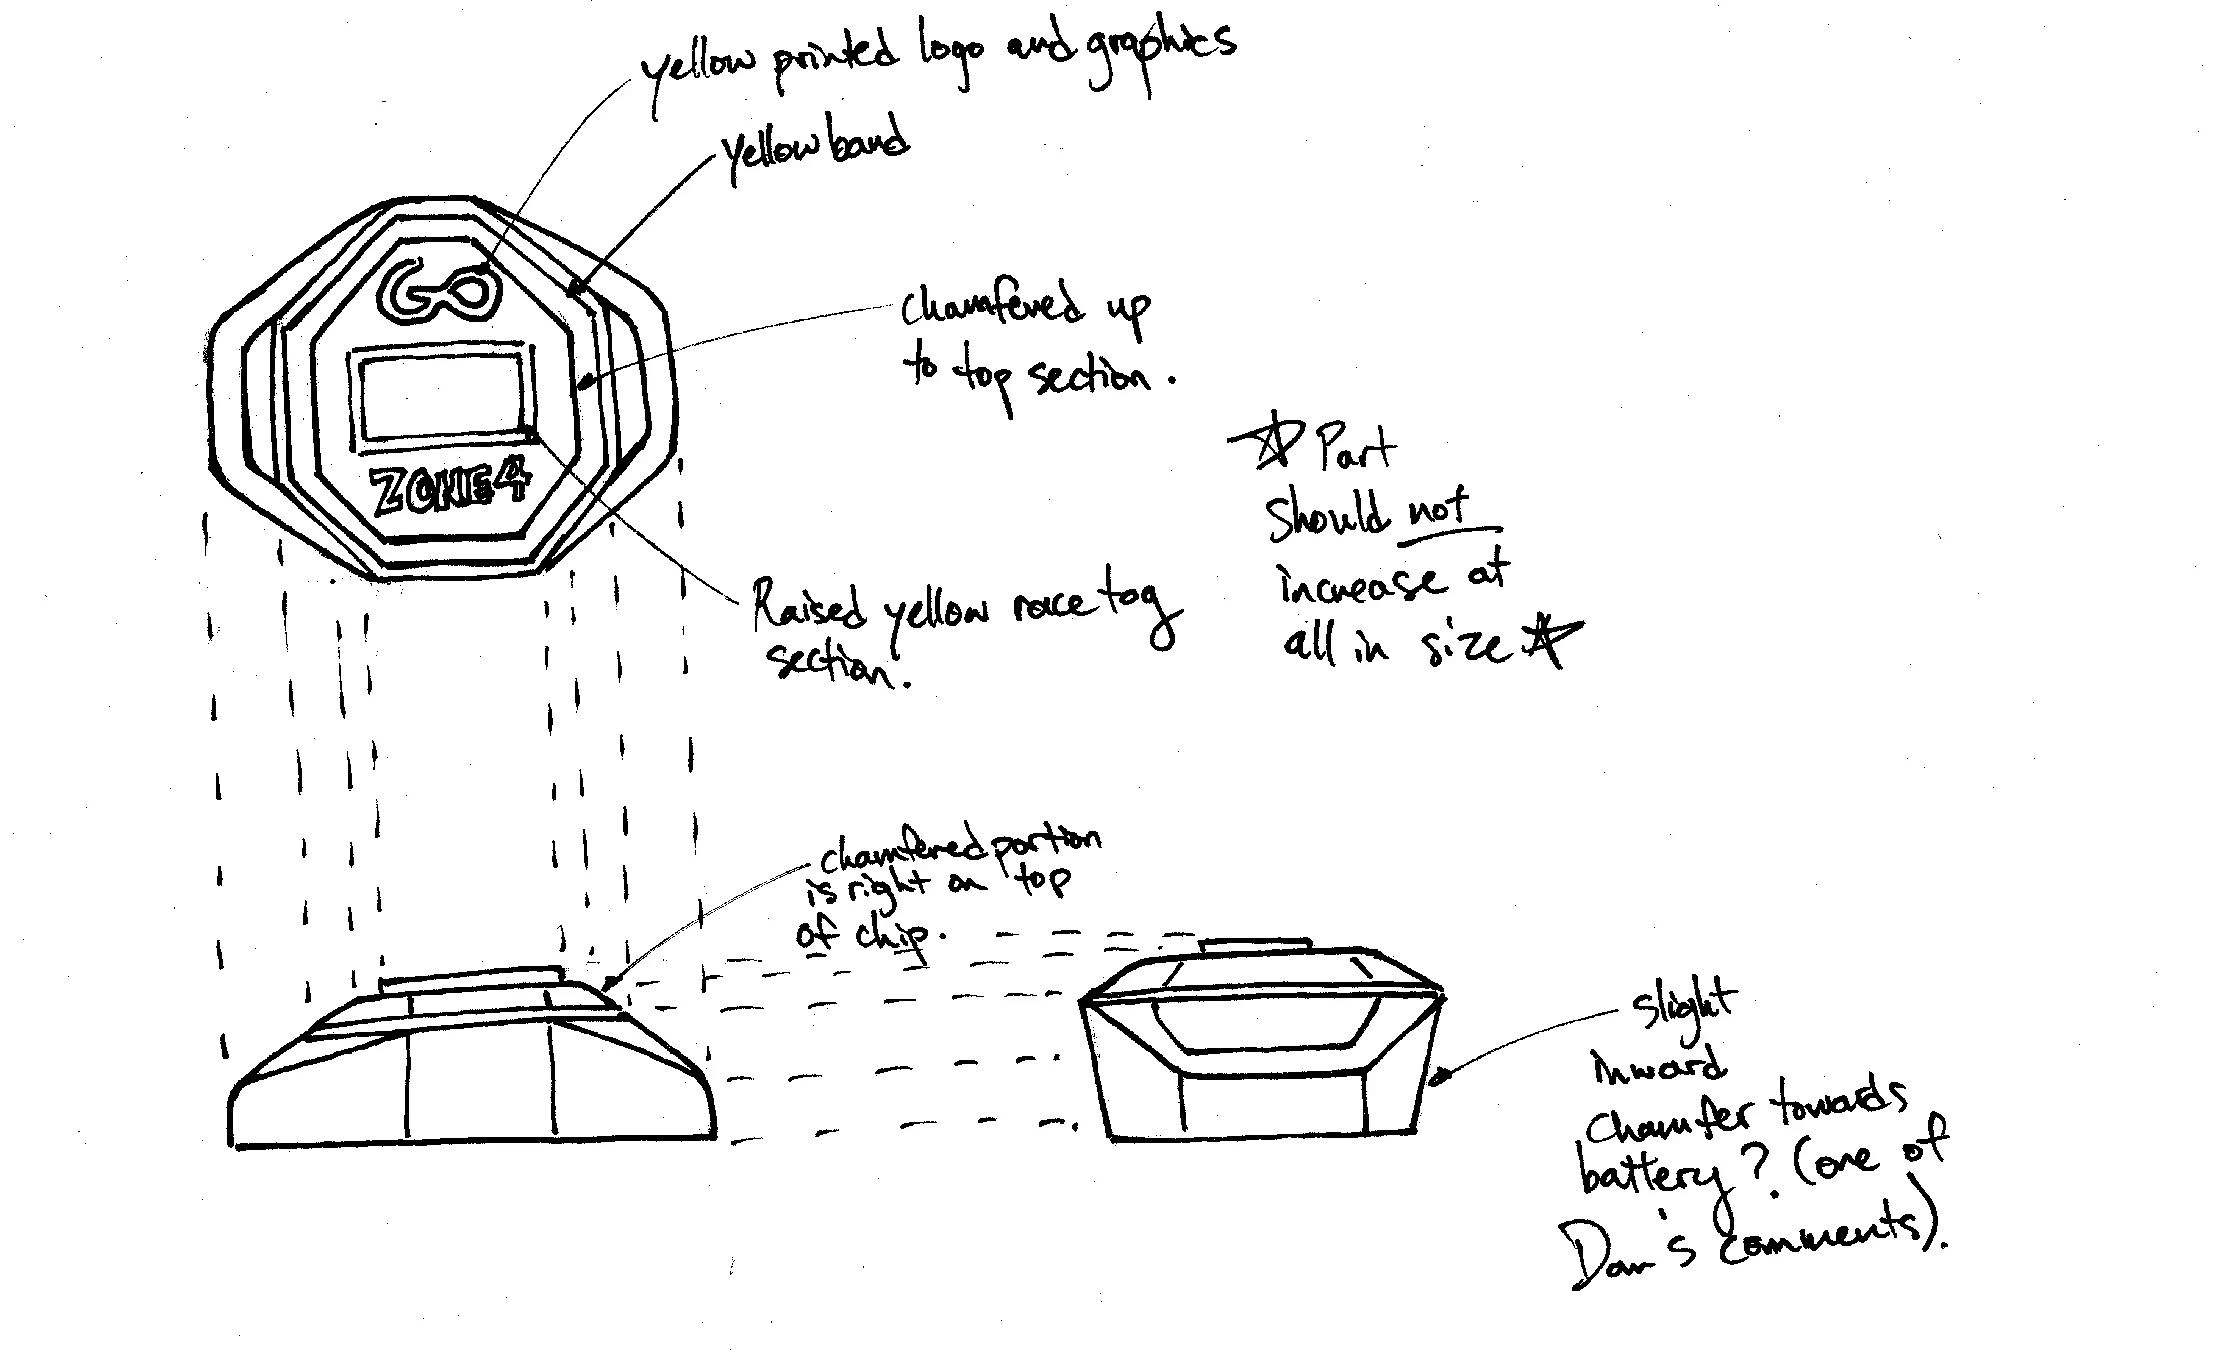 yellow printed logo and graphics
yellow band
GO
ZONE4
chamfered up
to top section.
Raised yellow race tag
section.
☆ Part
should not
increase at
all in size ☆
chamfered portion
is right on top
of chip.
slight
inward
chamfer towards
battery? (one of
Dan's comments).